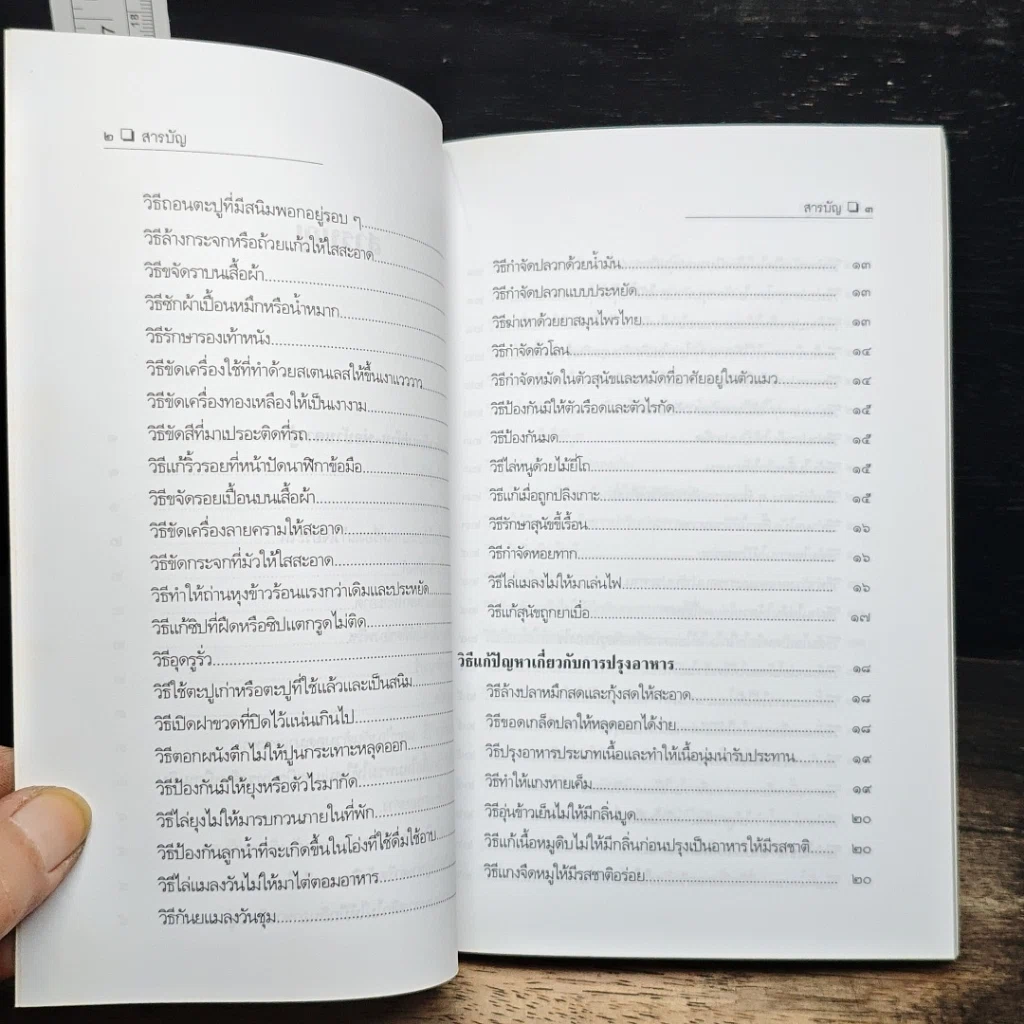 ๒ ❑ สารบัญ
วิธีถอนตะปูที่มีสนิมพอกอยู่รอบ ๆ
วิธีล้างกระจกหรือถ้วยแก้วให้ใสสะอาด
วิธีขจัดราบนเสื้อผ้า
วิธีซักผ้าเปื้อนหมึกหรือน้ำหมาก
วิธีรักษารองเท้าหนัง
วิธีขัดเครื่องใช้ที่ทำด้วยสเตนเลสให้ขึ้นเงาแวววาว
วิธีขัดเครื่องทองเหลืองให้เป็นเงางาม
วิธีขัดสีที่มาเปรอะติดที่รถ
วิธีแก้ริ้วรอยที่หน้าปัดนาฬิกาข้อมือ
วิธีขจัดรอยเปื้อนบนเสื้อผ้า
วิธีขัดเครื่องลายครามให้สะอาด
วิธีขัดกระจกที่มัวให้ใสสะอาด
วิธีทำให้ถ่านหุงข้าวร้อนแรงกว่าเดิมและประหยัด
วิธีแก้ซิปที่ฝืดหรือซิปแตกรูดไม่ติด
วิธีอุดรูรั่ว
วิธีใช้ตะปูเก่าหรือตะปูที่ใช้แล้วและเป็นสนิม
วิธีเปิดฝาขวดที่ปิดไว้แน่นเกินไป
วิธีตอกผนังตึกไม่ให้ปูนกระเทาะหลุดออก
วิธีป้องกันมิให้ยุงหรือตัวไรมากัด
วิธีไล่ยุงไม่ให้มารบกวนภายในที่พัก
วิธีป้องกันลูกน้ำที่จะเกิดขึ้นในโอ่งที่ใช้ดื่มใช้อาบ
วิธีไล่แมลงวันไม่ให้มาไต่ตอมอาหาร
วิธีกันยแมลงวันชุม
สารบัญ ❑ ๓
วิธีกำจัดปลวกด้วยน้ำมัน ๑๓
วิธีกำจัดปลวกแบบประหยัด ๑๓
วิธีฆ่าเหาด้วยยาสมุนไพรไทย ๑๓
วิธีกำจัดตัวโลน ๑๔
วิธีกำจัดหมัดในตัวสุนัขและหมัดที่อาศัยอยู่ในตัวแมว ๑๔
วิธีป้องกันมิให้ตัวเรือดและตัวไรกัด ๑๕
วิธีป้องกันมด ๑๕
วิธีไล่หนูด้วยไม้ยี่โถ ๑๕
วิธีแก้เมื่อถูกปลิงเกาะ ๑๕
วิธีรักษาสุนัขขี้เรื้อน ๑๖
วิธีกำจัดหอยทาก ๑๖
วิธีไล่แมลงไม่ให้มาเล่นไฟ ๑๖
วิธีแก้สุนัขถูกยาเบื่อ ๑๗
วิธีแก้ปัญหาเกี่ยวกับการปรุงอาหาร ๑๘
วิธีล้างปลาหมึกสดและกุ้งสดให้สะอาด ๑๘
วิธีขอดเกล็ดปลาให้หลุดออกได้ง่าย ๑๘
วิธีปรุงอาหารประเภทเนื้อและทำให้เนื้อนุ่มน่ารับประทาน ๑๙
วิธีทำให้แกงหายเค็ม ๑๙
วิธีอุ่นข้าวเย็นไม่ให้มีกลิ่นบูด ๒๐
วิธีแก้เนื้อหมูดิบไม่ให้มีกลิ่นก่อนปรุงเป็นอาหารให้มีรสชาติ ๒๐
วิธีแกงจืดหมูให้มีรสชาติอร่อย ๒๐